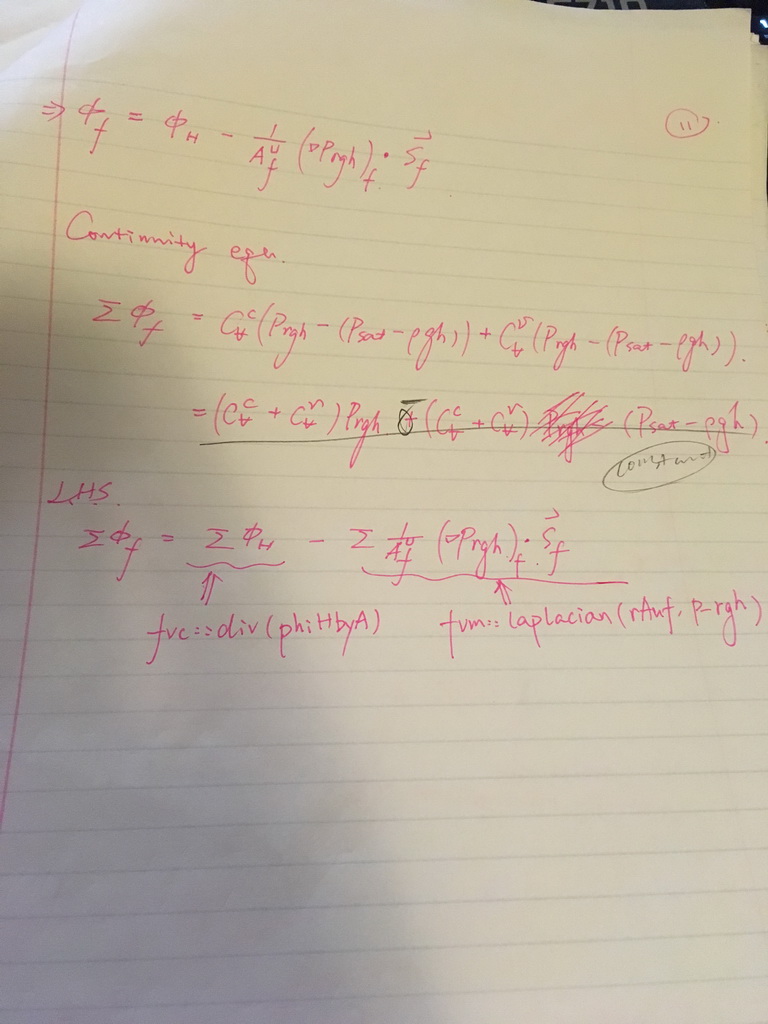 11
⇒ ϕ_f = ϕ_H − 1/A_f^u (∇P_rgh)_f · S⃗_f
Continuity eqn.
Σ ϕ_f = C_v^c (P_rgh − (P_sat − ρgh)) + C_v^v (P_rgh − (P_sat − ρgh)).
= (C_v^c + C_v^v) P_rgh − (C_v^c + C_v^v) (P_sat − ρgh)
constant
LHS.
Σ ϕ_f = Σ ϕ_H − Σ 1/A_f^u (∇P_rgh)_f · S⃗_f
⇑ ↑
fvc::div(phiHbyA) fvm::laplacian(rAuf, p-rgh)